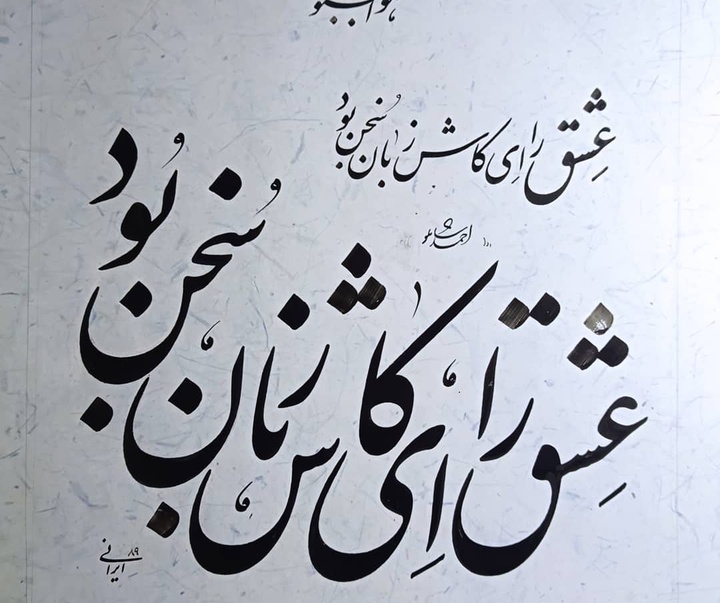 عشق را ای کاش زبان سخن بود
احمد شاملو
عشق را ای کاش زبان سخن بود
ایرانی ۸۹